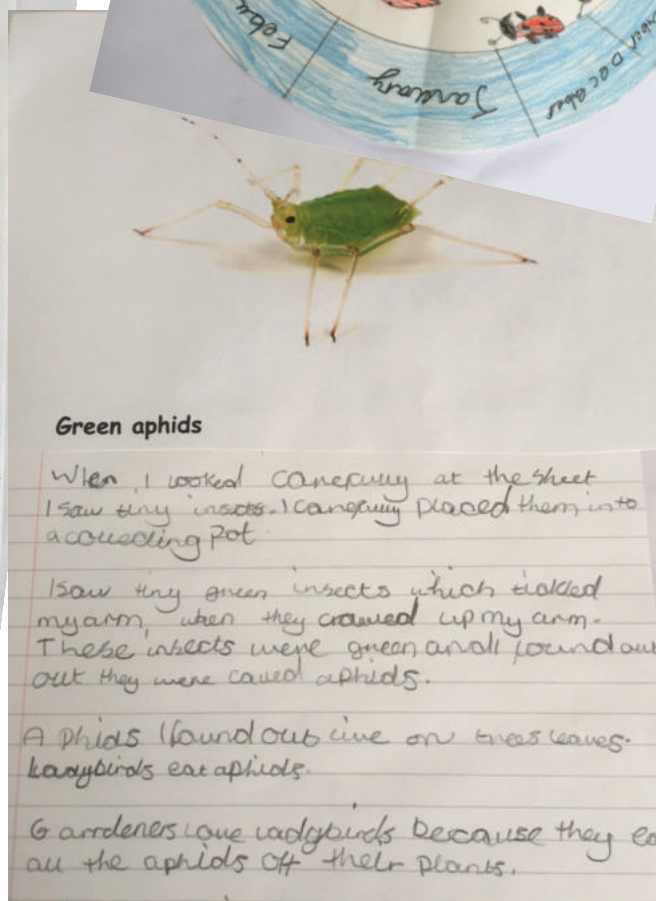 Febu
January
December
Green aphids
When I looked carefully at the sheet
I saw tiny insects. I carefully placed them into
a collecting pot.
I saw tiny green insects which tickled
my arm, when they crawled up my arm.
These insects were green and I found out
out they were called aphids.
Aphids I found out live on trees leaves.
Ladybirds eat aphids.
Garrdeners love ladybirds because they ea
all the aphids off their plants.